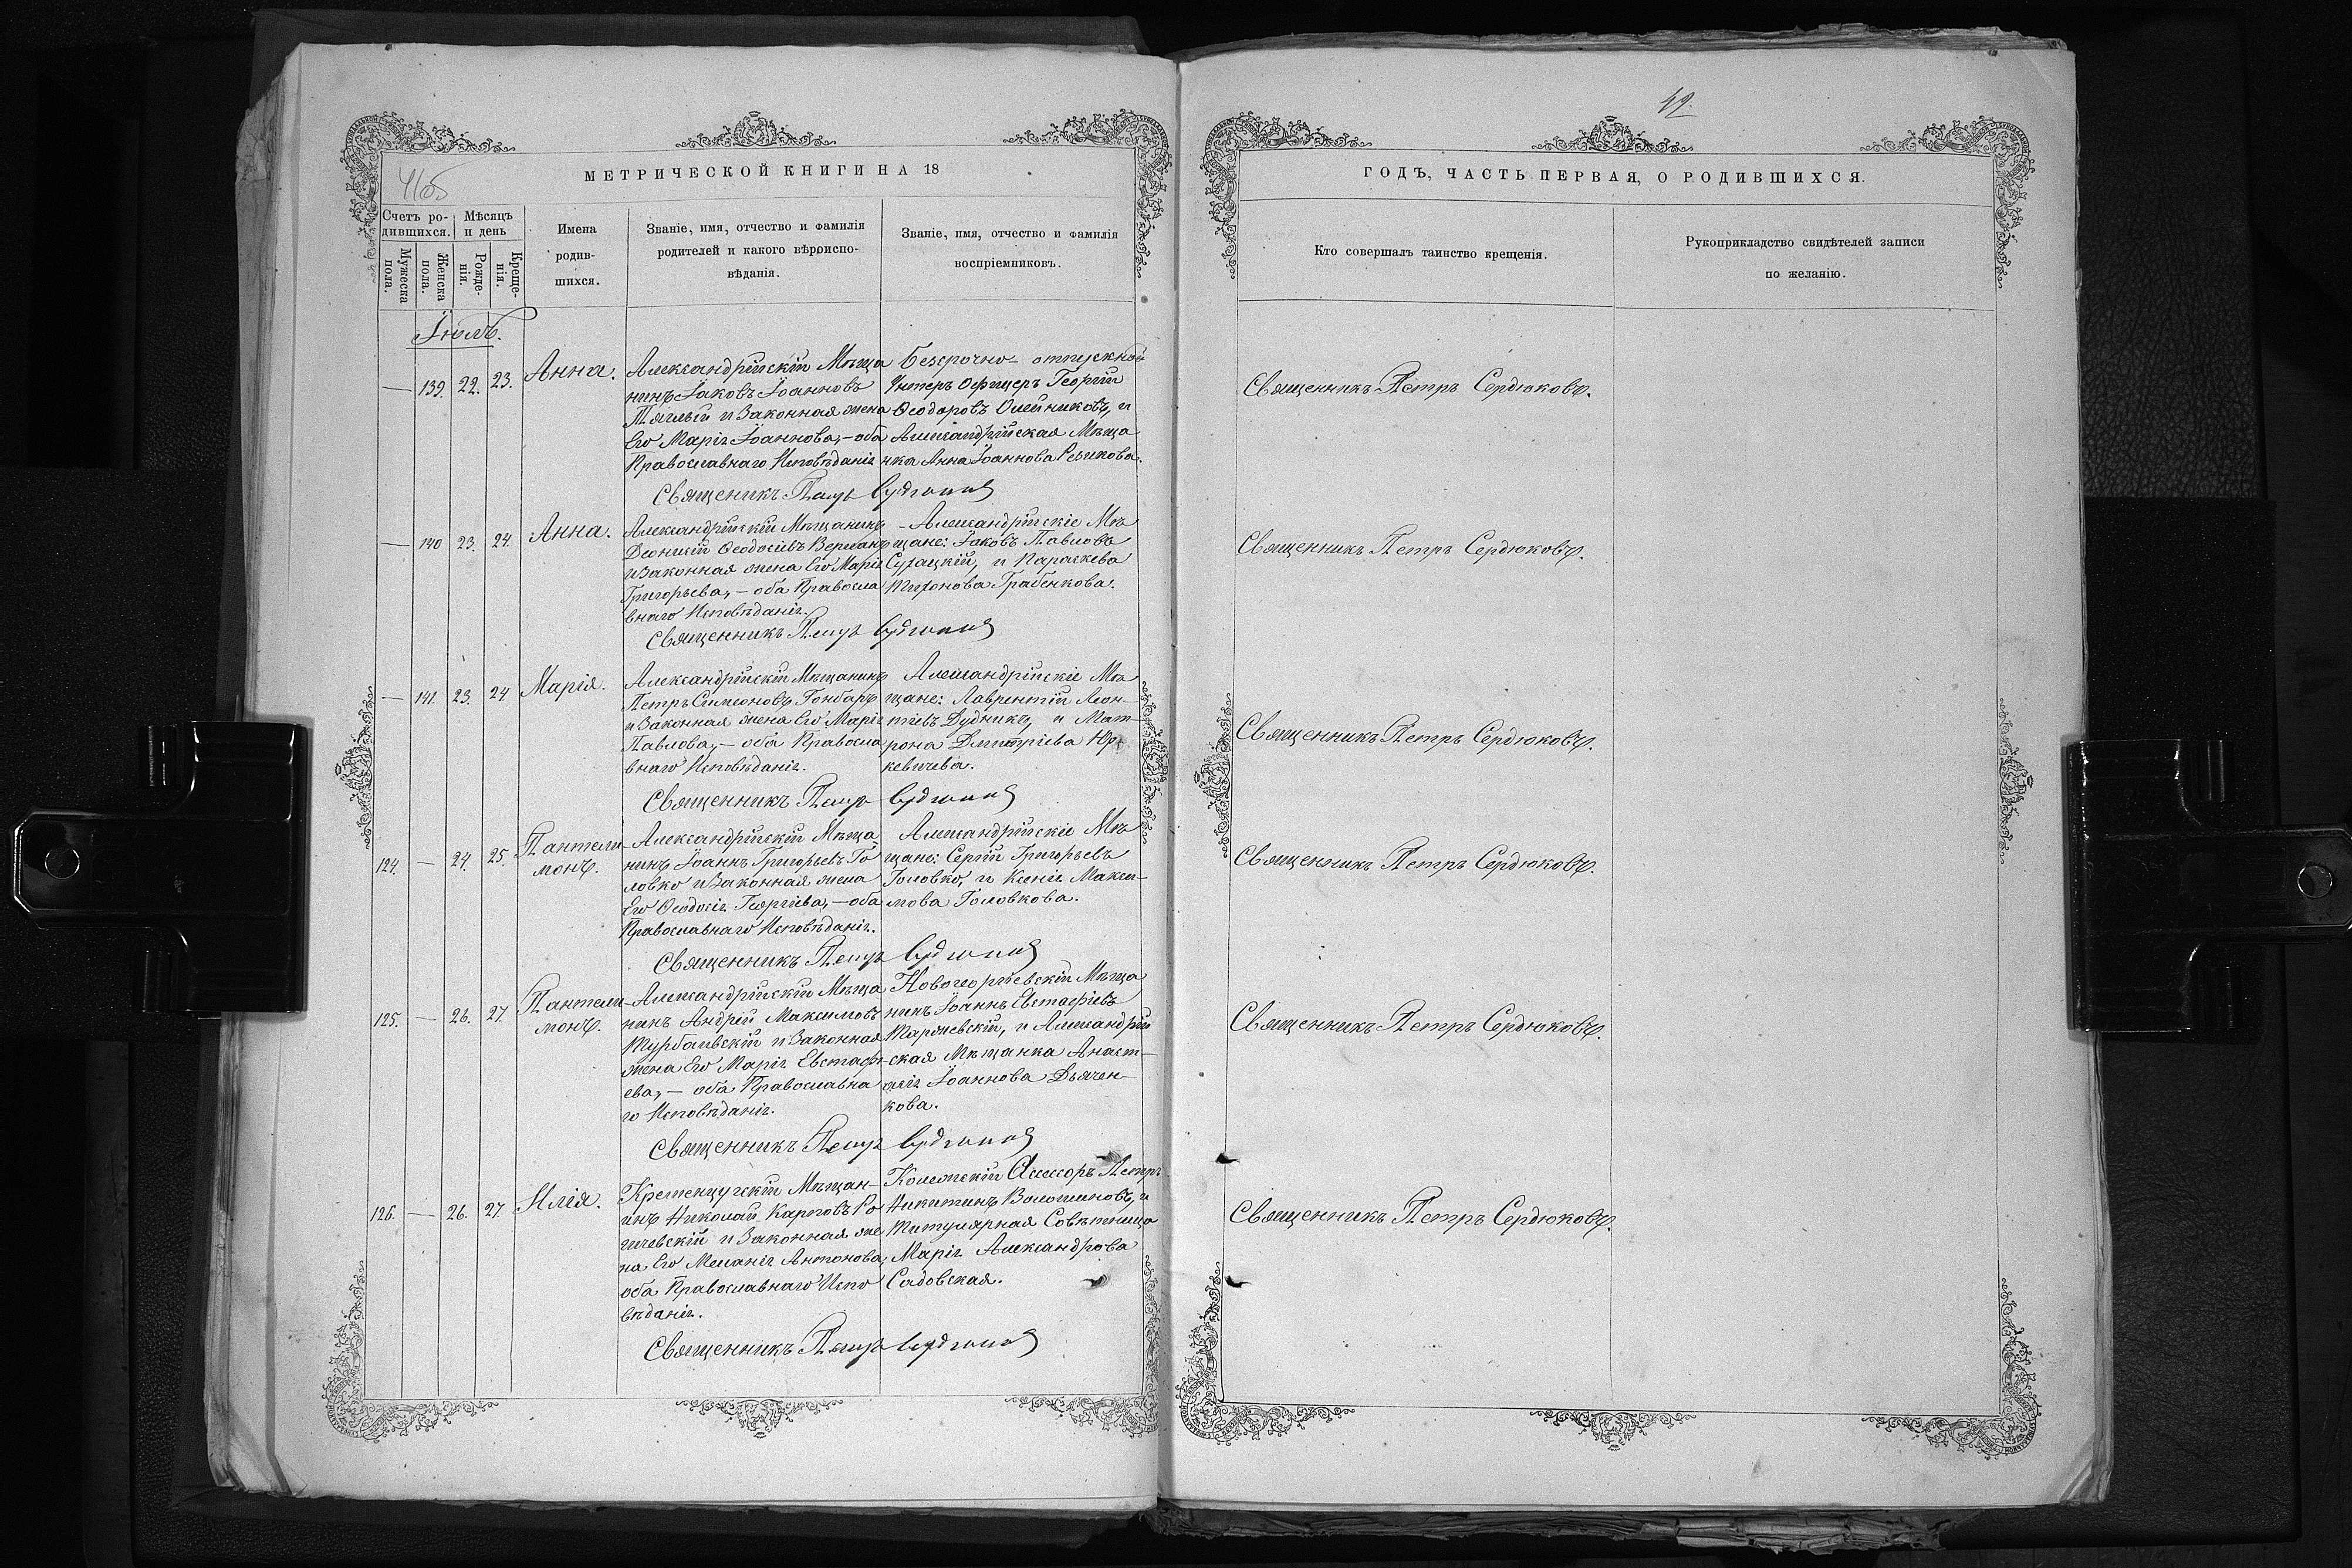 42
МЕТРИЧЕСКОЙ КНИГИ НА 18
ГОДЪ, ЧАСТЬ ПЕРВАЯ, О РОДИВШИХСЯ.
Счетъ ро-
дившихся.
Мѣсяцъ
и день
Мужеска
пола.
Женска
пола.
Рожде-
нія.
Креще-
нія.
Имена
родив-
шихся.
Званіе, имя, отчество и фамилія
родителей и какого вѣроиспо-
вѣданія.
Званіе, имя, отчество и фамилія
воспріемниковъ.
Кто совершалъ таинство крещенія.
Рукоприкладство свидѣтелей записи
по желанію.
Іюль.
— 139. 22. 23. Анна.
Александрійскій Мѣща
нинъ Іаковъ Іоанновъ
Тяглый и Законная жена
Его Марія Іоаннова, – оба
Православнаго Исповѣданія
Безсрочно – отпускной
Унтеръ Офицеръ Георгій
Ѳеодоровъ Олейниковъ, и
Александрійская Мѣща
нка Анна Іоаннова Резикова.
Священникъ Петръ Сердюковъ.
Священникъ Петръ
— 140 23. 24. Анна.
Александрійскій Мѣщанинъ
Ѳеодосіевъ
и Законная жена Его Марія
Григорьева, – оба Правосла
внаго Исповѣданія.
– Александрійскіе Мѣ
щане: Іаковъ Павловъ
Сухацкій, и Параскева
Тихонова Грабенкова.
Священникъ Петръ Сердюковъ.
Священникъ Петръ
— 141. 23. 24 Марія.
Александрійскій Мѣщанинъ
Петръ Симеоновъ Гонбаръ
и Законная жена Его Марія
Павлова, – оба Правосла
внаго Исповѣданія.
Александрійскіе Мѣ
щане: Лаврентій Леон–
тіевъ Дудникъ, и Мат–
рона Дмитріева Юр
кевичева.
Священникъ Петръ Сердюковъ.
Священникъ Петръ
124. — 24. 25. Пантелеи
монъ.
Александрійскій Мѣща
нинъ Іоаннъ Григорьевъ Го
ловко и Законная жена
Его Ѳеодосія Георгіева, – оба
Православнаго Исповѣданія.
Александрійскіе Мѣ
щане: Сергій Григорьевъ
Головко, и Ксенія Макси–
мова Головкова.
Священникъ Петръ Сердюковъ.
Священникъ Петръ
125. — 26. 27. Пантелеи
монъ.
Александрійскій Мѣща
нинъ Андрей Максимовъ
Турбаевскій и Законная
жена Его Марія Евстафі
ева, – оба Православна
го Исповѣданія.
Новогеоргіевскій Мѣща
нинъ Іоаннъ Евстафіевъ
и Александрій
ская Мѣщанка Анаст–
асія Іоаннова Дьячен–
кова.
Священникъ Петръ Сердюковъ.
Священникъ Петръ
126. — 26. 27. Илія.
Кременчугскій Мѣщан–
инъ Николай Карповъ Ро
гичевскій и Законная же
на Его Меланія Антонова,
оба Православнаго Испо
вѣданія.
Колежскій Асессоръ Петръ
Никитинъ Волошиновъ, и
Титулярная Совѣтница
Марія Александрова
Садовская.
Священникъ Петръ Сердюковъ.
Священникъ Петръ